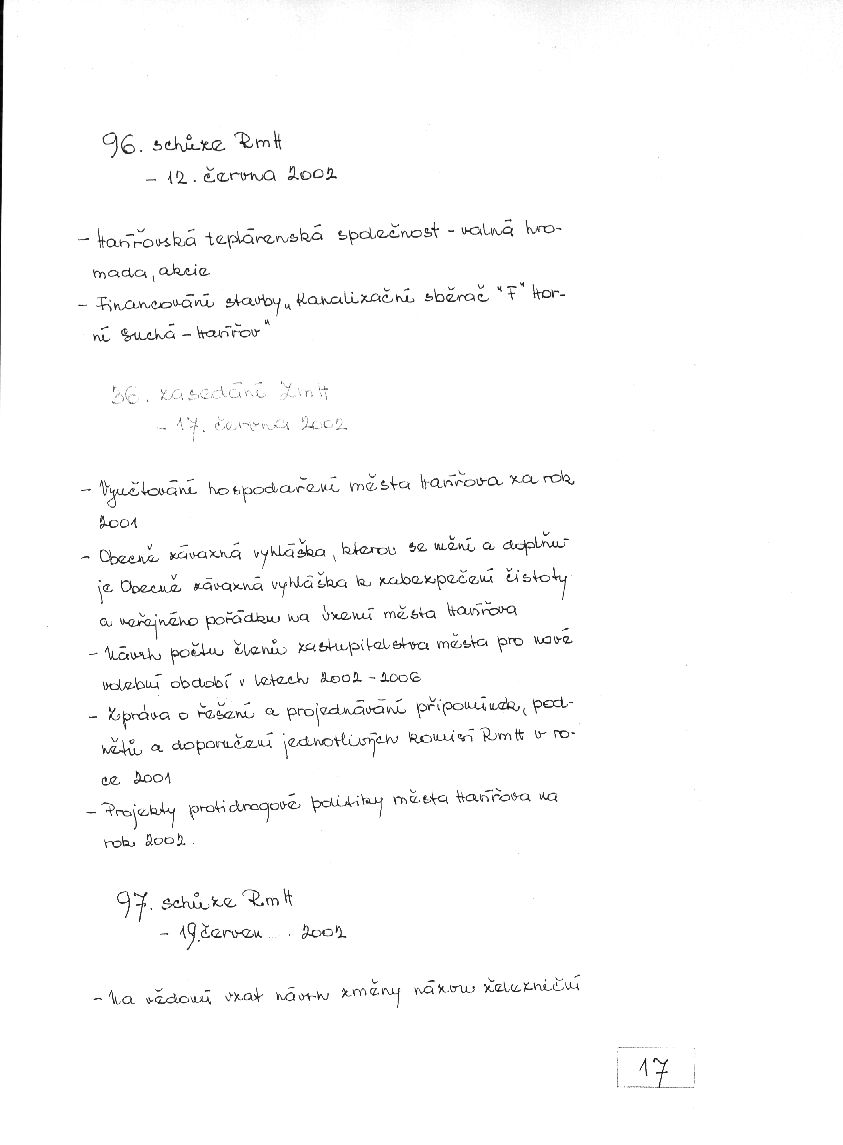 96. schůze RmH
- 12. června 2002
- Havířovská teplárenská společnost - valná hro-
mada, akcie
- Financování stavby „Kanalizační sběrač "F" Hor-
ní Suchá - Havířov"
36. zasedání ZmH
- 17. června 2002
- Vyúčtování hospodaření města Havířova za rok
2001
- Obecně závazná vyhláška, kterou se mění a doplňu-
je Obecně závazná vyhláška k zabezpečení čistoty
a veřejného pořádku na území města Havířova
- Návrh počtu členů zastupitelstva města pro nové
volební období v letech 2002 - 2006
- Zpráva o řešení a projednávání připomínek, pod-
nětů a doporučení jednotlivých komisí RmH v ro-
ce 2001
- Projekty protidrogové politiky města Havířova na
rok 2002.
97. schůze RmH
- 19. červen . 2002
- Na vědomí vzat návrh změny názvu železniční
17